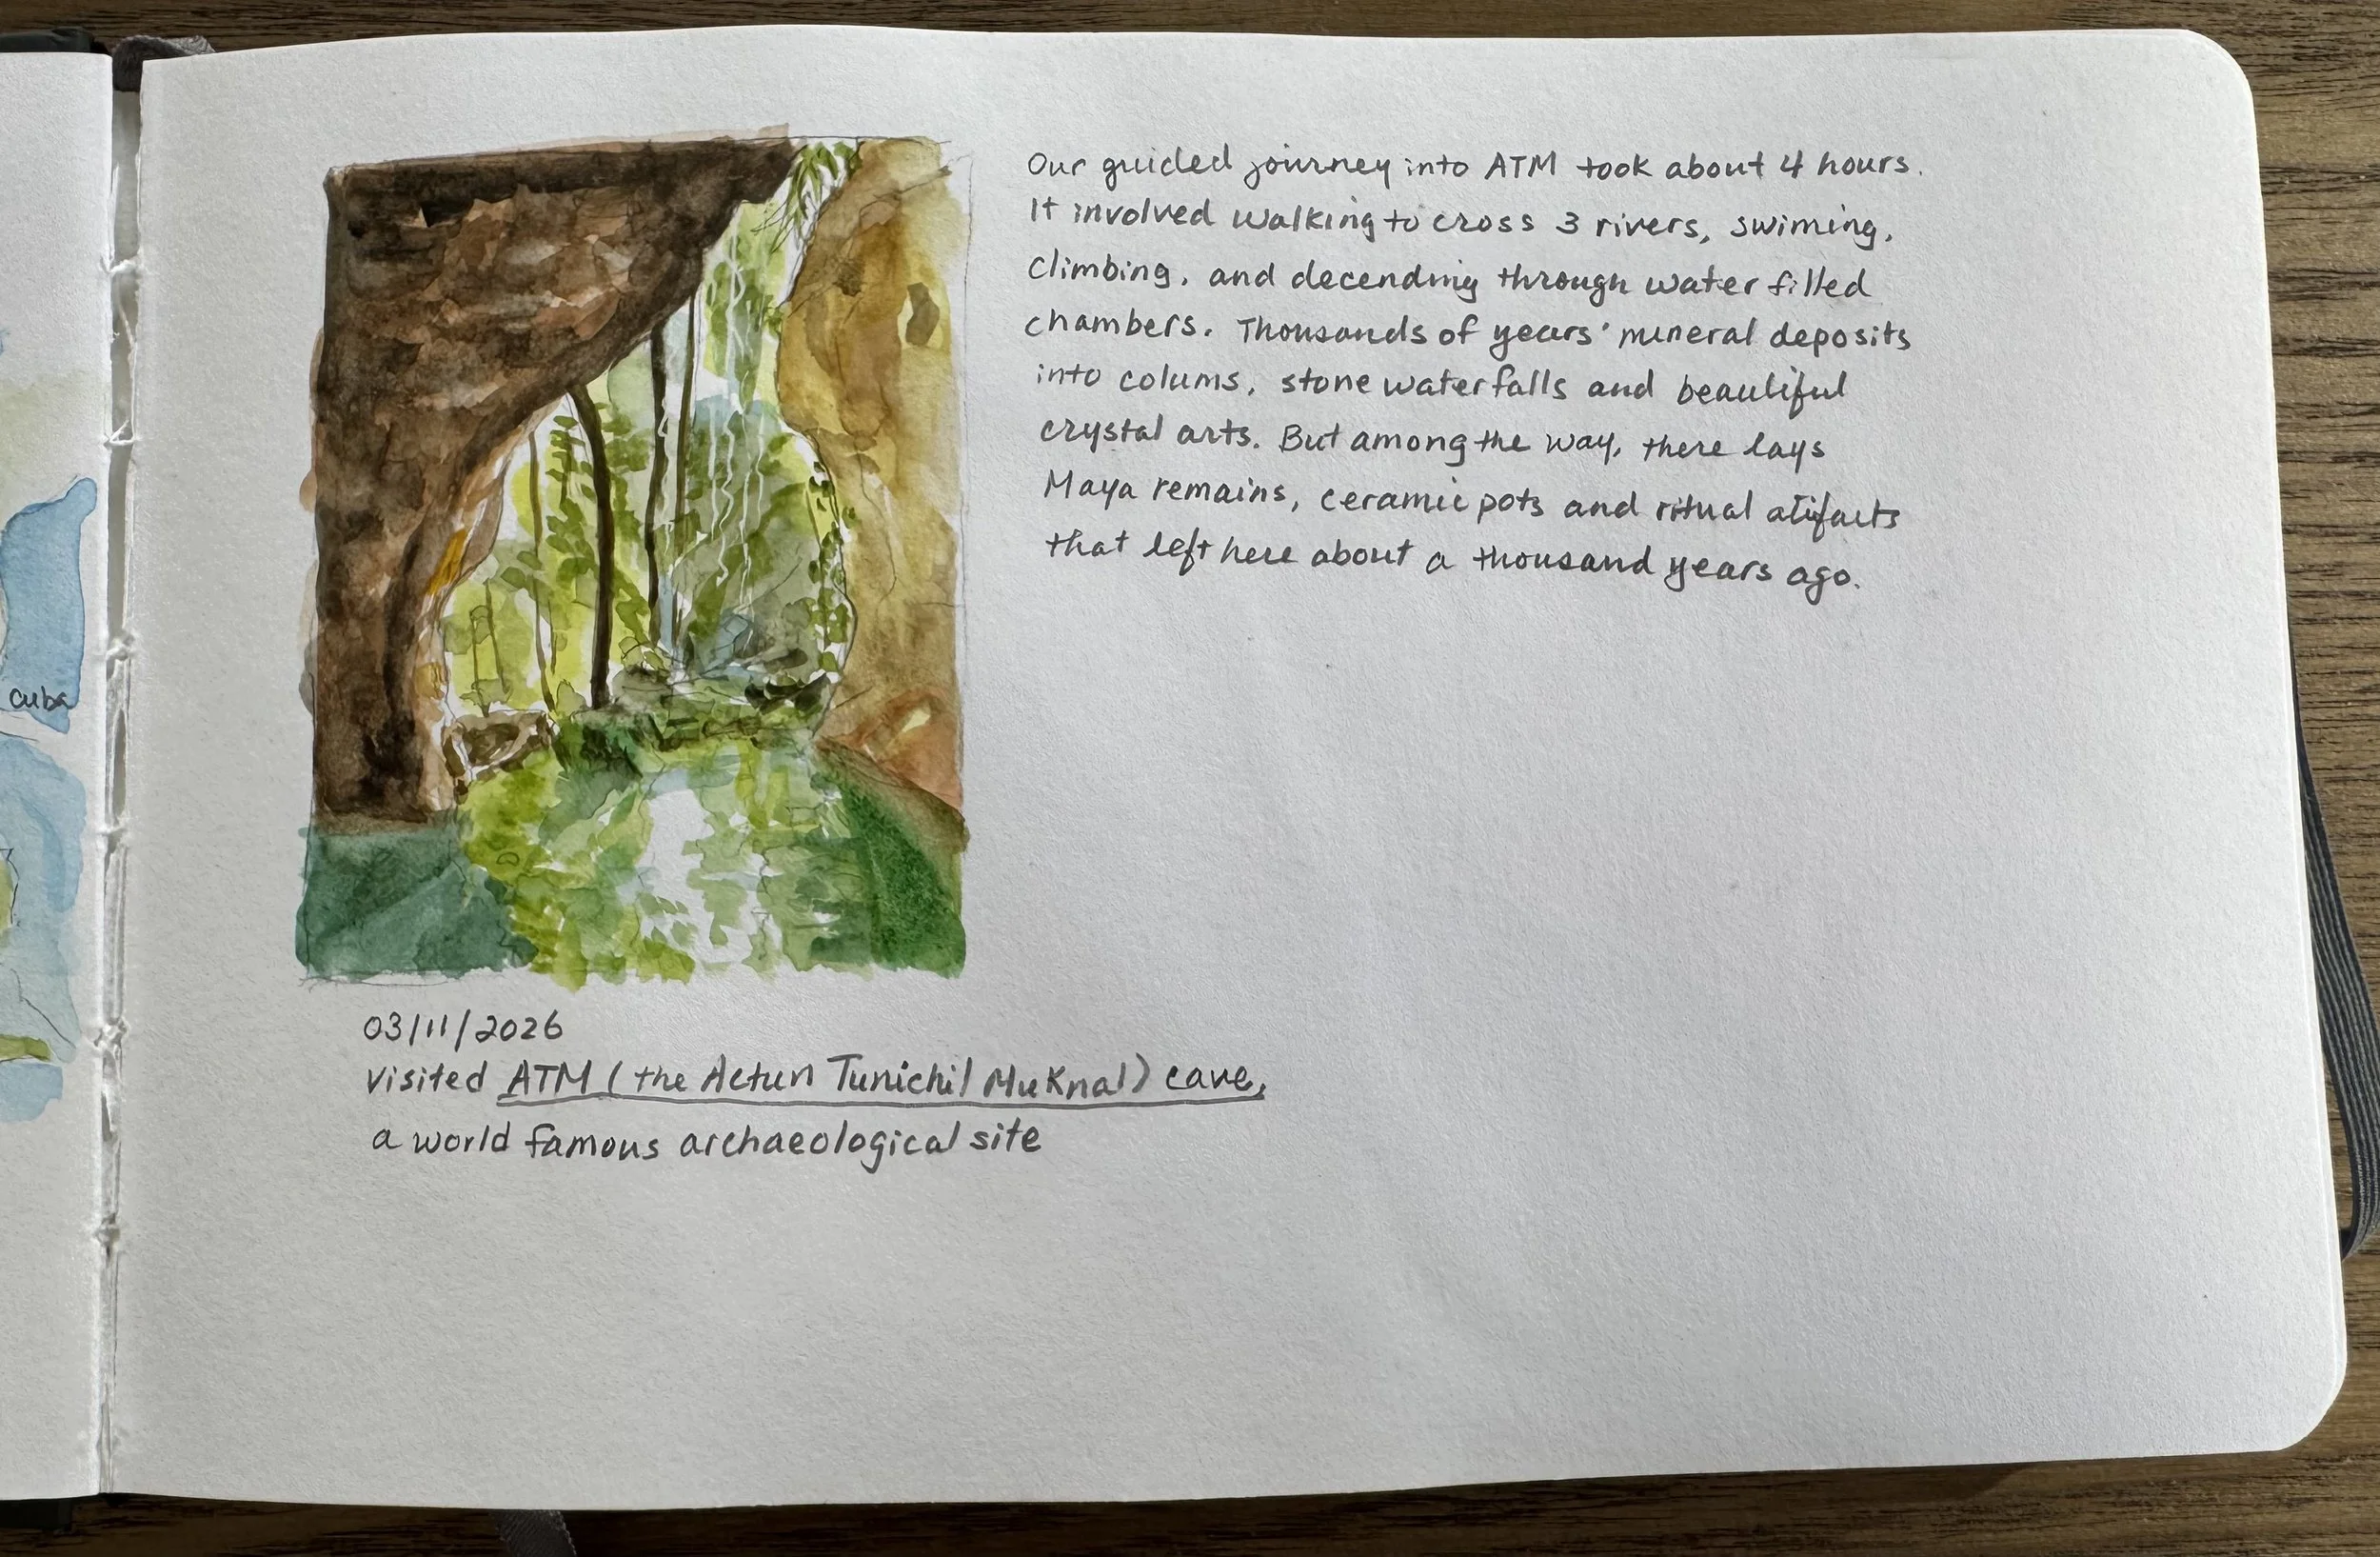 Our guided journey into ATM took about 4 hours.
It involved walking to cross 3 rivers, swiming,
climbing, and decending through water filled
chambers. Thousands of years' mineral deposits
into colums, stone waterfalls and beautiful
crystal arts. But among the way, there lays
Maya remains, ceramic pots and ritual atifacts
that left here about a thousand years ago.
03/11/2026
Visited ATM (the Actun Tunichil Muknal) cave,
a world famous archaeological site
Cuba